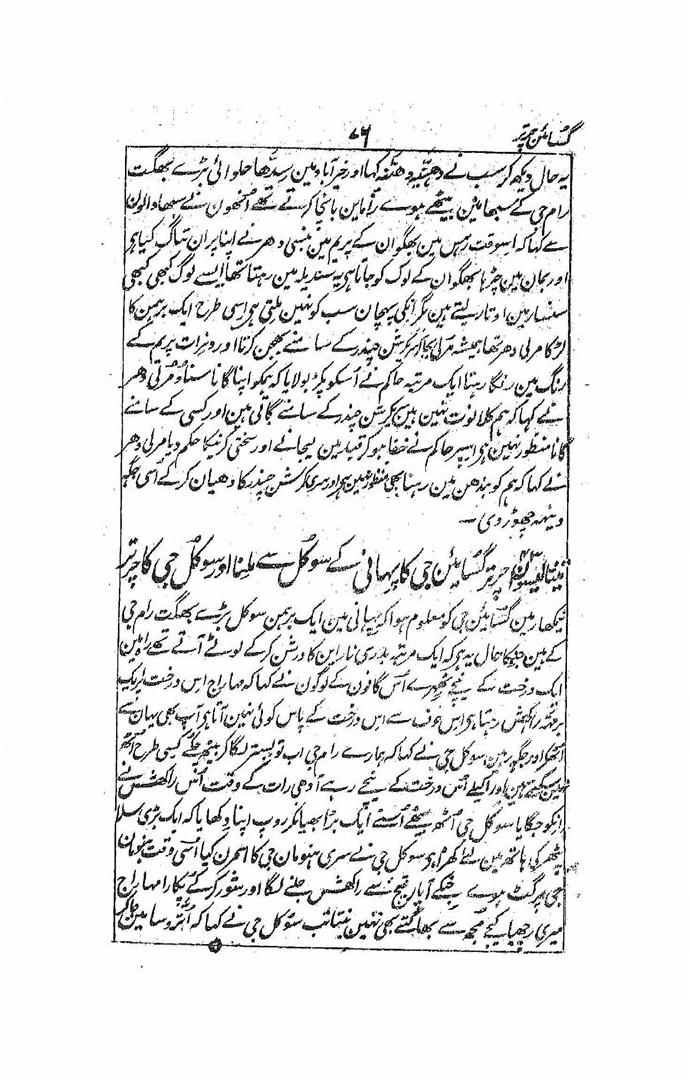 گسائین چرتر ۷۶
یہ حال دیکھ کر سب نے دھنیہ دھنیہ کہا اور خیرآباد مین سدھا حلوائی بڑے بھگت
رام جی کے سبھا مین بیٹھے ہوے رامائن بانچا کرتے تھے اُنھون نے سبھا والون
سے کہا کہ اسوقت رہس مین بھگوان کے پریم مین بنسی دھر نے اپنا پران تیاگ کیا ہی
اور بمان مین چڑھا بھگوان کے لوک کو جاتا ہی یہ سندیلہ مین رہتا تھا ایسے لوگ کبھی کبھی
سنسار مین اوتار لیتے ہین مگر انکی پہچان سب کو نہین ملتی ہی اسی طرح ایک برہمن کا
لڑکا مرلی دھر تھا ہمیشہ مرلی بجاکر کرشن چندر کے سامنے بھجن کرتا اور دن رات پریم کے
رنگ مین رنگا رہتا ایک مرتبہ حاکم نے اُسکو پکڑ بولایا کہ ہمکو اپنا گانا سناؤ مرلی دھر
نے کہا کہ ہم کلانوت نہین ہین سری کرشن چندر کے سامنے گاتے ہین اور کسی کے سامنے
گانا منظور نہین ہی اسپر حاکم نے خفا ہو کر قید مین لیجانے اور سختی کرنیکا حکم دیا مرلی دھر
نے کہا کہ ہم کو بندھن مین رہنا بھی منظور نہین ہی اور سری کرشن چندر کا دھیان کر کے اُسی جگہ
دیہہ چھوڑ دی ۔
تینتالیسوان چرتر گسائین جی کا پہانی کے سوکل سے ملنا اور سوکل جی کا چرتر
نیکھار مین گسائین جی کو معلوم ہوا کہ پہانی مین ایک برہمن سوکل بڑے بھگت رام جی
کے ہین جنکا حال یہ ہی کہ ایک مرتبہ بدری ناراین کا درشن کر کے لوٹے آتے تھے راہ مین
ایک درخت کے نیچے ٹھہرے اُس گانون کے لوگون نے کہا کہ مہاراج اس درخت پر ایک
برمھ راکھش رہتا ہی اس خوف سے اس درخت کے پاس کوئی نہین آتا ہی آپ بھی یہان سے
اُٹھا اور جگہ رہین سوکل جی نے کہا کہ ہمارے رام جی اب تو بستر لگا کر بیٹھ چکے کسی طرح اُٹھ
نہین سکتے ہین اور اکیلے اُس درخت کے نیچے رہے آدھی رات کے وقت اُس راکھش نے
انکو جگایا سوکل جی اُٹھ بیٹھے اُسنے ایک بڑا بھیانکر روپ اپنا دکھایا کہ ایک بڑی سلا
پتھر کی ہاتھ مین لئے کھڑا ہی سوکل جی نے سری ہنومان جی کا اسمرن کیا اُسی وقت ہنومان
جی پرگٹ ہوے جنکے آیا ریجے سے راکھش جلنے لگا اور شور کر کے پکارا مہاراج
میری رچھیا کیجے مجھ سے بھاگتے بھی نہین بنتا تب سوکل جی نے کہا کہ اُتر دسا مین جا کر